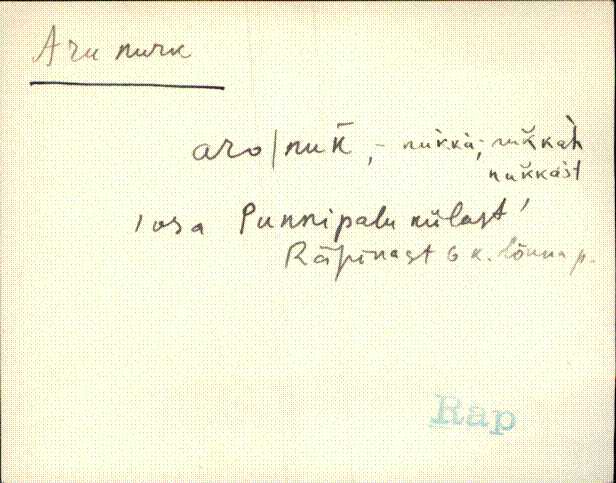 Aru nurk
aro/nuk̆, - nukka; nuk̆kah
nuk̆kast
'osa Punnipalu külast'
Räpinast 6 k. lõuna p.
Rap